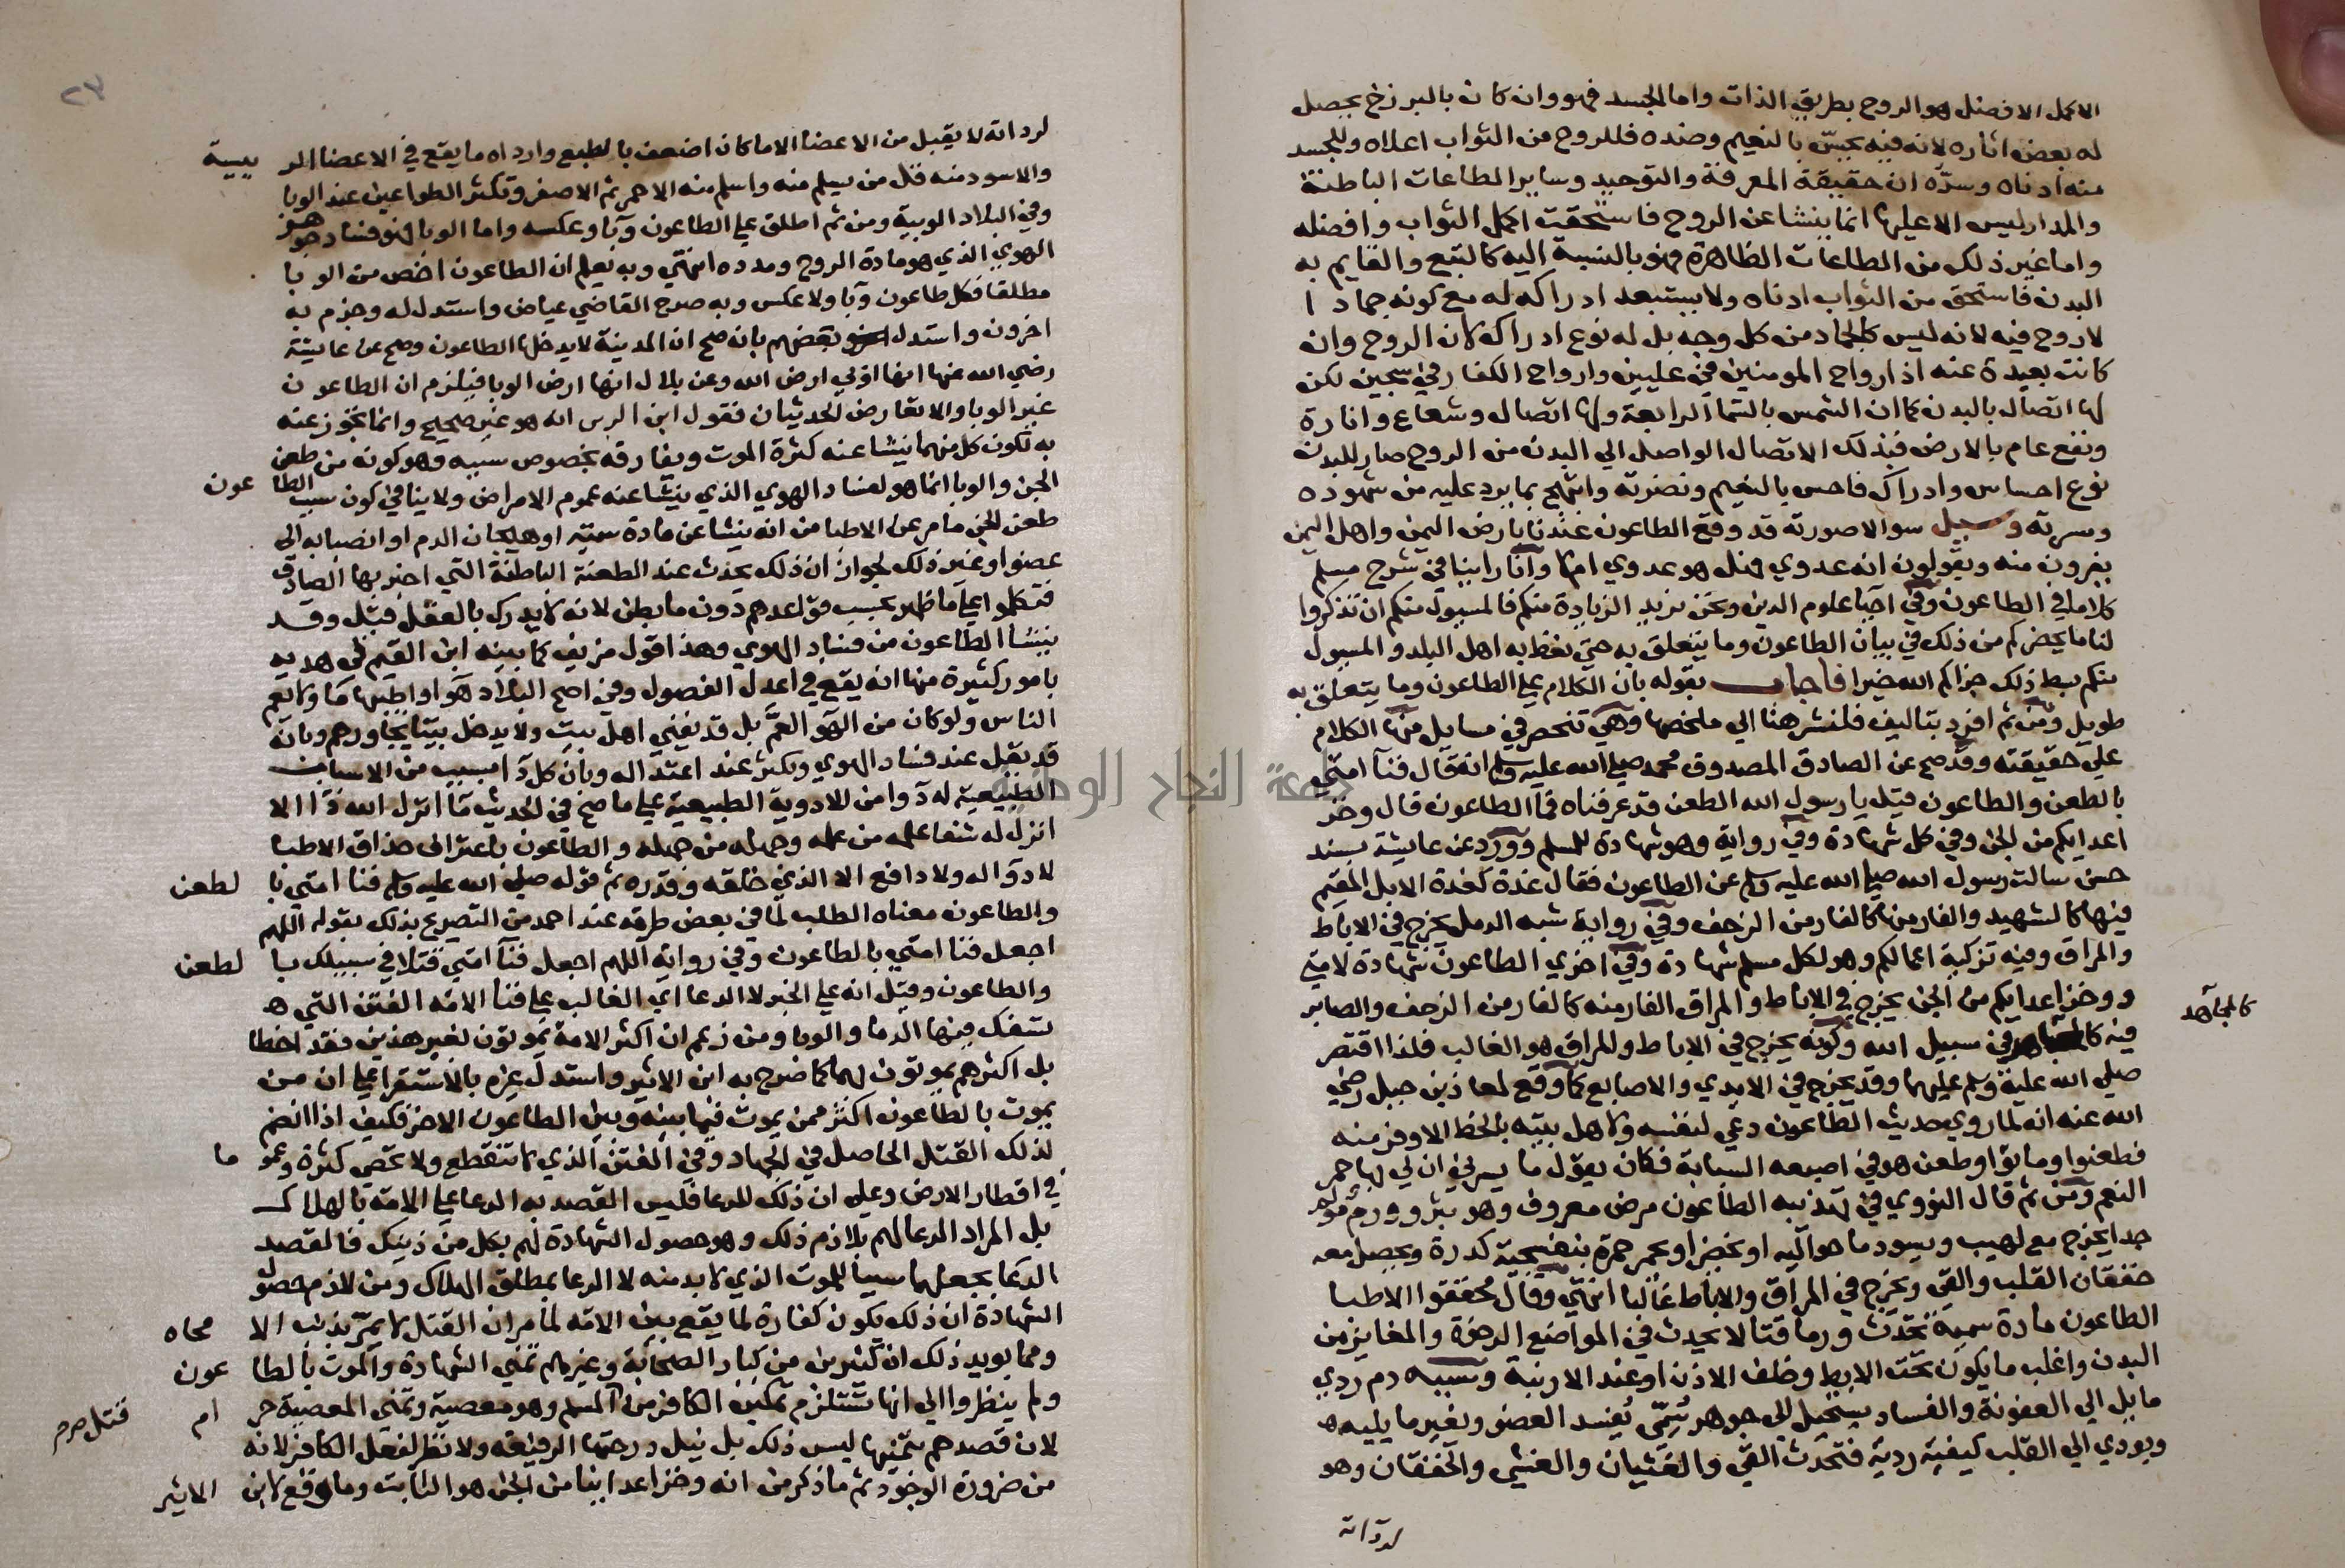 الاكمل الافضل هو الروح بطريق الذات واما الجسد فهو وان كان بالبرزخ يحصل
له بعض اثاره لانه فيه يحس بالنعيم وضده فللروح من الثواب اعلاه وللجسد
منه ادناه وسره ان حقيقة المعرفة والتوحيد وساير الطاعات الباطنة
والمدار ليس الا عليها انما ينشا عن الروح فاستحقت اكمل الثواب وافضله
واما غير ذلك من الطاعات الظاهرة فهو بالنسبة اليه كالتبع والقايم به
البدن فاستحق من الثواب ادناه ولا يستبعد ادراكه له مع كونه جمادا
لا روح فيه لانه ليس كالجماد من كل وجه بل له نوع ادراك لان الروح وان
كانت بعيدة عنه اذ ارواح المومنين في عليين وارواح الكفار في سجين لكن
لها اتصال بالبدن كما ان الشمس بالسما الرابعة ولها اتصال وشعاع وانارة
ونفع عام بالارض فبذلك الاتصال الواصل الي البدن من الروح صار للبدن
نوع احساس وادراك فاحس بالنعيم ونضرته وابتهج بما يرد عليه من شهوده
ومسرته وسيل سوالا صورته قد وقع الطاعون عندنا بارض اليمن واهل اليمن
يفرون منه ويقولون انه عدوي فهل هو عدوي ام لا وانا راينا في شرح مسلم
كلاما في الطاعون وفي احيا علوم الدين ونحن نريد الزيادة منكم فالمسول منكم ان تذكروا
لنا ما يحضركم من ذلك في بيان الطاعون وما يتعلق به حتي نعظ به اهل البلد والمسول
منكم بسط ذلك جزاكم الله خيرا فاجاب بقوله بان الكلام علي الطاعون وما يتعلق به
طويل ومن ثم افرد بتاليف فلنشر هنا الي ملخصها وهي تنحصر في مسايل منها الكلام
علي حقيقته وقد صح عن الصادق المصدوق محمد صلي الله عليه وسلم انه قال فنا امتي
بالطعن والطاعون قيل يا رسول الله الطعن قد عرفناه فما الطاعون قال وخز
اعدايكم من الجن وفي كل شهادة وفي رواية وهو شهادة للمسلم وورد عن عايشة بسند
حسن سالت رسول الله صلي الله عليه وسلم عن الطاعون فقال غدة كغدة الابل المقيم
فيها كالشهيد والفار منها كالفار من الزحف وفي رواية شبه الدمل يخرج في الاباط
والمراق وفيه تزكية اعمالكم وهو لكل مسلم شهادة وفي اخري الطاعون شهادة لامتي
ووخز اعدايكم من الجن يخرج في الاباط والمراق الفار منه كالفار من الزحف والصابر
كالمجاهد
فيه في سبيل الله وكونه يخرج في الاباط والمراق هو الغالب فلذا اقتصر
صلي الله عليه وسلم عليهما وقد يخرج في الايدي والاصابع كما وقع لمعاذ بن جبل رضي
الله عنه انه لما روي حديث الطاعون دعي لنفسه ولاهل بيته بالحظ الاوفر منه
فطعنوا وماتوا وطعن هو في اصبعه السبابة فكان يقول ما يسرني ان لي بها حمر
النعم ومن ثم قال النووي في تهذيبه الطاعون مرض معروف وهو بثر وورم مولم
جدا يخرج مع لهيب ويسود ما حواليه او يخضر او يحمر حمرة بنفسجية كدرة ويحصل معه
خفقان القلب والقي ويخرج في المراق والاباط غالبا انتهي وقال محققوا الاطبا
الطاعون مادة سمية تحدث ورما قتالا يحدث في المواضع الرخوة والمغابن من
البدن واغلب ما يكون تحت الابط وخلف الاذن او عند الارنبة وسببه دم ردي
مايل الي العفونة والفساد يستحيل الي جوهر سمي يفسد العضو ويغير ما يليه
ويودي الي القلب كيفية ردية فتحدث القي والغثيان والغشي والخفقان وهو
لرداته
٢٣
لرداته لا يقبل من الاعضا الا ما كان اضعف بالطبع وارداه ما يقع في الاعضا الرييسية
والاسود منه قل من يسلم منه واسلمه الاحمر ثم الاصفر وتكثر الطواعين عند الوبا
وفي البلاد الوبية ومن ثم اطلق علي الطاعون وبا وعكسه واما الوبا فهو فساد جوهر
الهوي الذي هو مادة الروح ومدده انتهي وبه يعلم ان الطاعون اخص من الوبا
مطلقا فكل طاعون وبا ولا عكس وبه صرح القاضي عياض واستدل له وجزم به
اخرون واستدل بعضهم بان صح ان المدينة لا يدخلها الطاعون وصح عن عايشة
رضي الله عنها انها اوبي ارض الله وعن بلال انها ارض الوبا فيلزم ان الطاعون
غير الوبا والا تعارض الحديثان فقول ابن الاثير انه هو غير صحيح وانما تجوز عنه
به لكون كل منهما ينشا عنه كثرة الموت ويفارقه بخصوص سببه وهو كونه من طعن
الجن والوبا انما هو لفساد الهوي الذي ينشا عنه عموم الامراض ولا ينافي كون سبب الطاعون
طعن الجن ما مر عن الاطبا من انه ينشا عن مادة سمية او هيجان الدم او انصبابه الي
عضو او غير ذلك لجواز ان ذلك يحدث عند الطعنة الباطنة التي اخبر بها الصادق
فتكلموا علي ما ظهر بحسب قواعدهم دون ما بطن لانه لا يدرك بالعقل قيل وقد
ينشا الطاعون من فساد الهوي وهذا قول مزيف كما بينه ابن القيم في هديه
بامور كثيرة منها انه يقع في اعدل الفصول وفي اصح البلاد هوا واطيبها ما ولا يعم
الناس ولو كان من الهوا لعم بل قد يفني اهل بيت ولا يدخل بيتا يجاورهم وبانه
قد يقل عند فساد الهوي ويكثر عند اعتداله وبان كل دا بسبب من الاسباب
الطبيعية له دوا من الادوية الطبيعية علي ما صح في الحديث ما انزل الله دا الا
انزل له شفا علمه من علمه وجهله من جهله والطاعون باعتراف حذاق الاطبا
لا دوا له ولا دافع الا الذي خلقه وقدره ثم قوله صلي الله عليه وسلم فنا امتي بالطعن
والطاعون معناه الطلب لما في بعض طرقه عند احمد من التصريح بذلك بقوله اللهم
اجعل فنا امتي بالطاعون وفي رواية اللهم اجعل فنا امتي قتلا في سبيلك بالطعن
والطاعون وقيل انه علي الخبر لا الدعا اي الغالب علي فنا الامة الفتن التي
تسفك فيها الدما والوبا ومن زعم ان اكثر الامة يموتون لغير هذين فقد اخطا
بل اكثرهم يموتون بهما كما صرح به ابن الاثير واستدل غيره بالاستقرا علي ان من
يموت بالطاعون اكثر ممن يموت فيما بينه وبين الطاعون الاخر فكيف اذا انضم
لذلك القتل الحاصل في الجهاد وفي الفتن الذي لا تنقطع ولا تحصي كثرة وعموما
في اقطار الارض وعلي ان ذلك للدعا فليس القصد به الدعا علي الامة بالهلاك
بل المراد الدعا لهم بلازم ذلك وهو حصول الشهادة لهم بكل من ذينك فالقصد
الدعا بجعلهما سببا للموت الذي لا بد منه لا الدعا بمطلق الهلاك ومن لازم حصول
الشهادة ان ذلك يكون كفارة لما يقع بين الامة لما مر ان القتل لا يمر بذنب الا محاه
ومما يويد ذلك ان كثيرين من كبار الصحابة وغيرهم تمني الشهادة والموت بالطاعون
ولم ينظروا الي انها تستلزم تمكين الكافر من قتل المسلم وهو معصية وتمني المعصية حرام
لان قصدهم بتمنيها ليس ذلك بل نيل درجتها الرفيعة ولا نظر لفعل الكافر لانه
من ضرورة الوجود ثم ما ذكر من انه وخز اعداينا من الجن هو الثابت وما وقع لابن الاثير